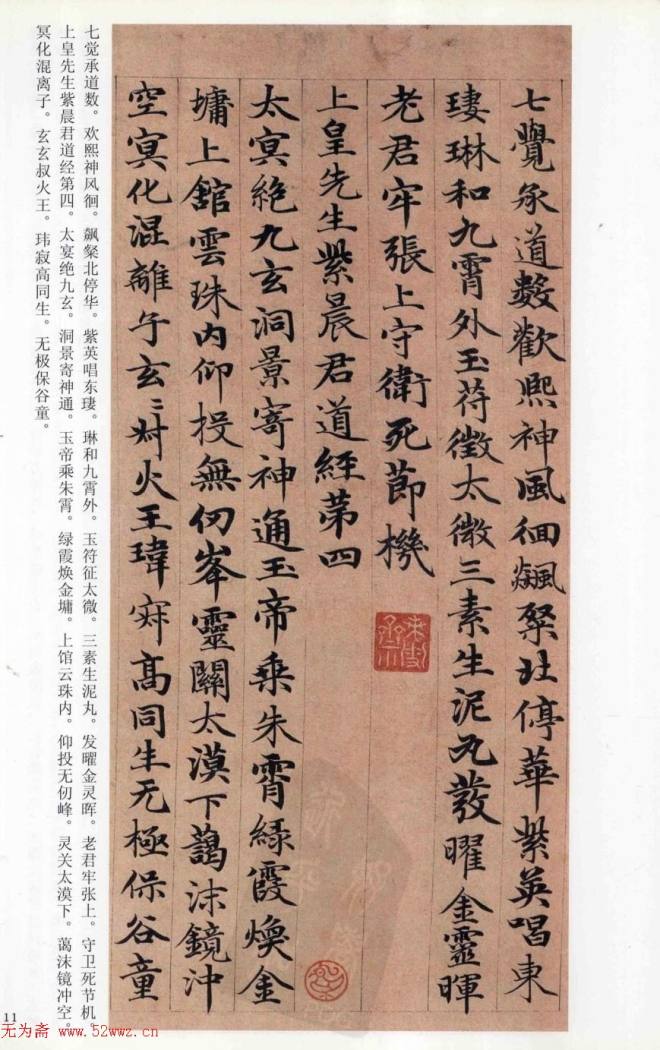 七覺承道數歡熙神風徊飊粲北停華紫英唱東
琲琳和九霄外玉苻徵太微三素生泥丸發曜金靈暉
老君牢張上守衛死節機
上皇先生紫晨君道經第四
太冥絶九玄洞景寄神通玉帝乘朱霄緑霞煥金
墉上舘雲珠内仰投無仞峯靈關太漠下藹沫鏡沖
空冥化混離子玄〻叔火王瑋寂高同生无極保谷童
七觉承道数。欢熙神风徊。飙粲北停华。紫英唱东㻎。琳和九霄外。玉符征太微。三素生泥丸。发曜金灵晖。老君牢张上。守卫死节机。
上皇先生紫晨君道经第四。太宴绝九玄。洞景寄神通。玉帝乘朱霄。绿霞焕金墉。上馆云珠内。仰投无仞峰。灵关太漠下。蔼沫镜冲空。
冥化混离子。玄玄叔火王。玮寂高同生。无极保谷童。
11
无为斋 www.52wwz.cn